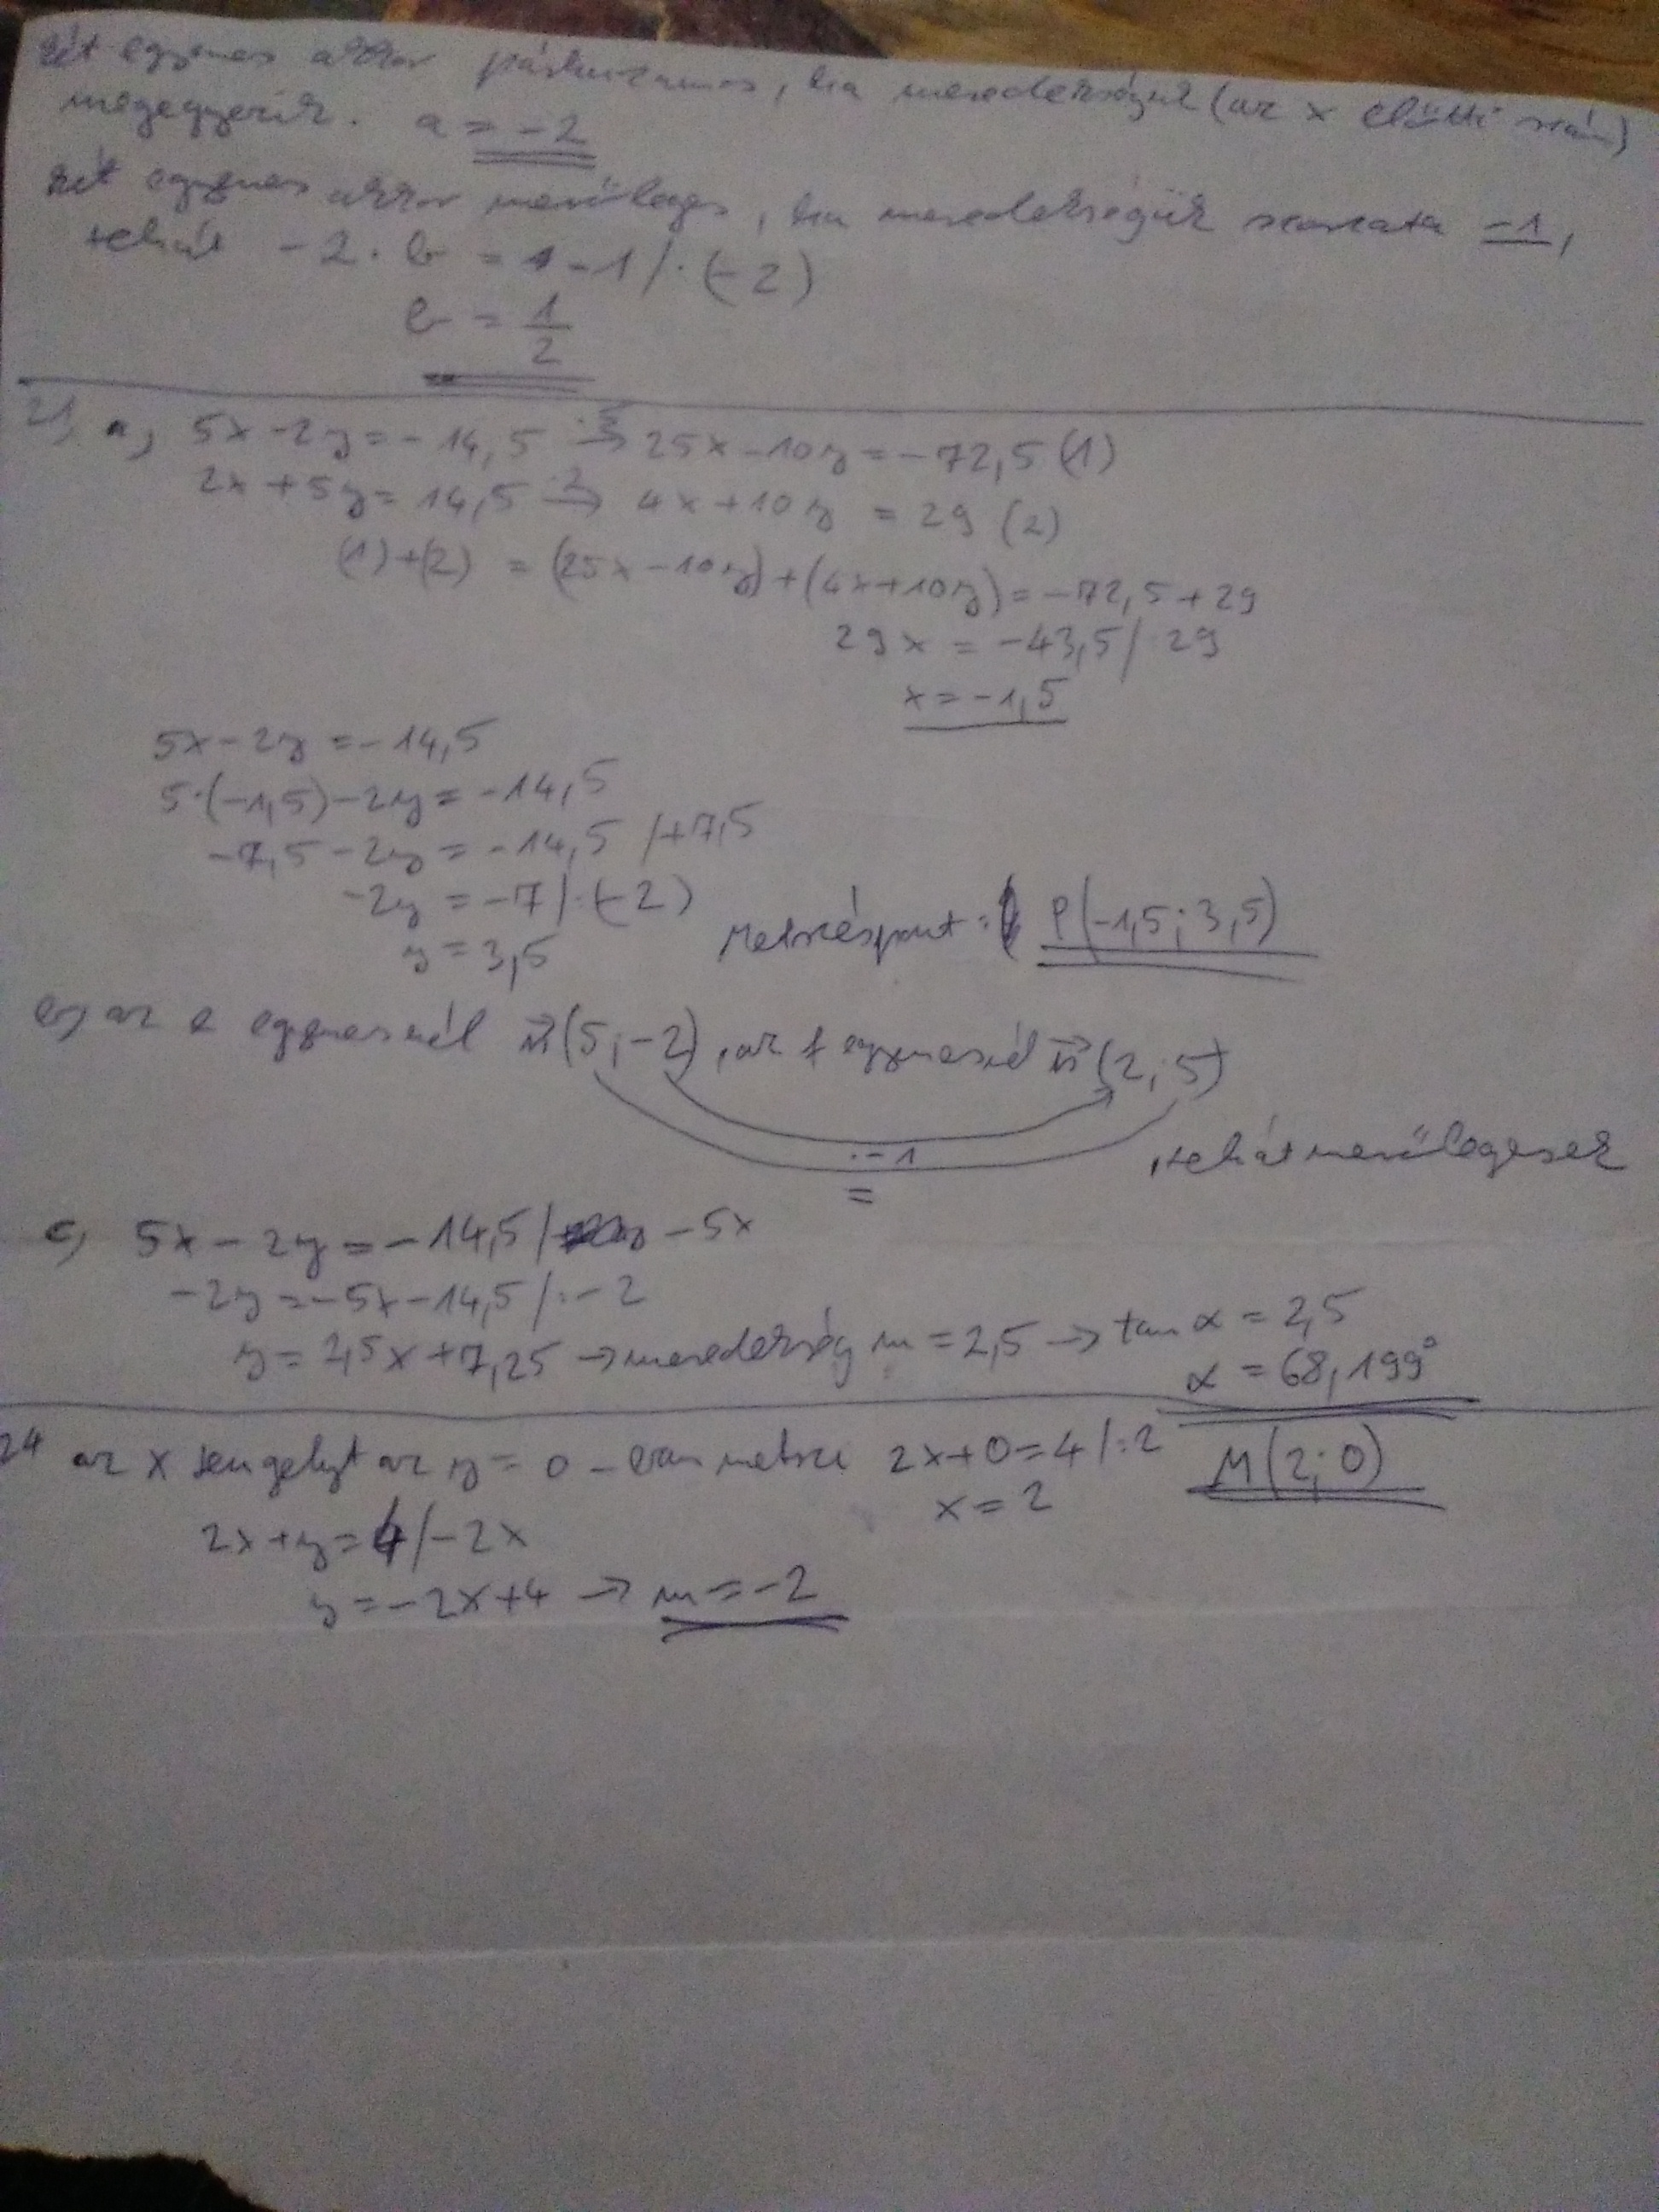 két egyenes akkor párhuzamos, ha meredekségük (az x előtti szám)
megegyezik. a = -2
két egyenes akkor merőleges, ha meredekségük szorzata -1,
tehát -2 · b = -1 / : (-2)
b = 1/2
21, a, 5x - 2y = -14,5 ·5→ 25x - 10y = -72,5 (1)
2x + 5y = 14,5 ·2→ 4x + 10y = 29 (2)
(1)+(2) = (25x - 10y) + (4x + 10y) = -72,5 + 29
29x = -43,5 / : 29
x = -1,5
5x - 2y = -14,5
5·(-1,5) - 2y = -14,5
-7,5 - 2y = -14,5 / +7,5
-2y = -7 / : (-2)
y = 3,5 Metszéspont: P(-1,5; 3,5)
b, az e egyenesnél n⃗(5; -2), az f egyenesnél n⃗(2; 5)
· -1 , tehát merőlegesek
=
c, 5x - 2y = -14,5 / -5x
-2y = -5x - 14,5 / : -2
y = 2,5x + 7,25 → meredekség m = 2,5 → tan α = 2,5
α = 68,199°
24 az x tengelyt az y = 0 - ban metszi 2x + 0 = 4 / : 2 M(2; 0)
x = 2
2x + y = 4 / -2x
y = -2x + 4 → m = -2